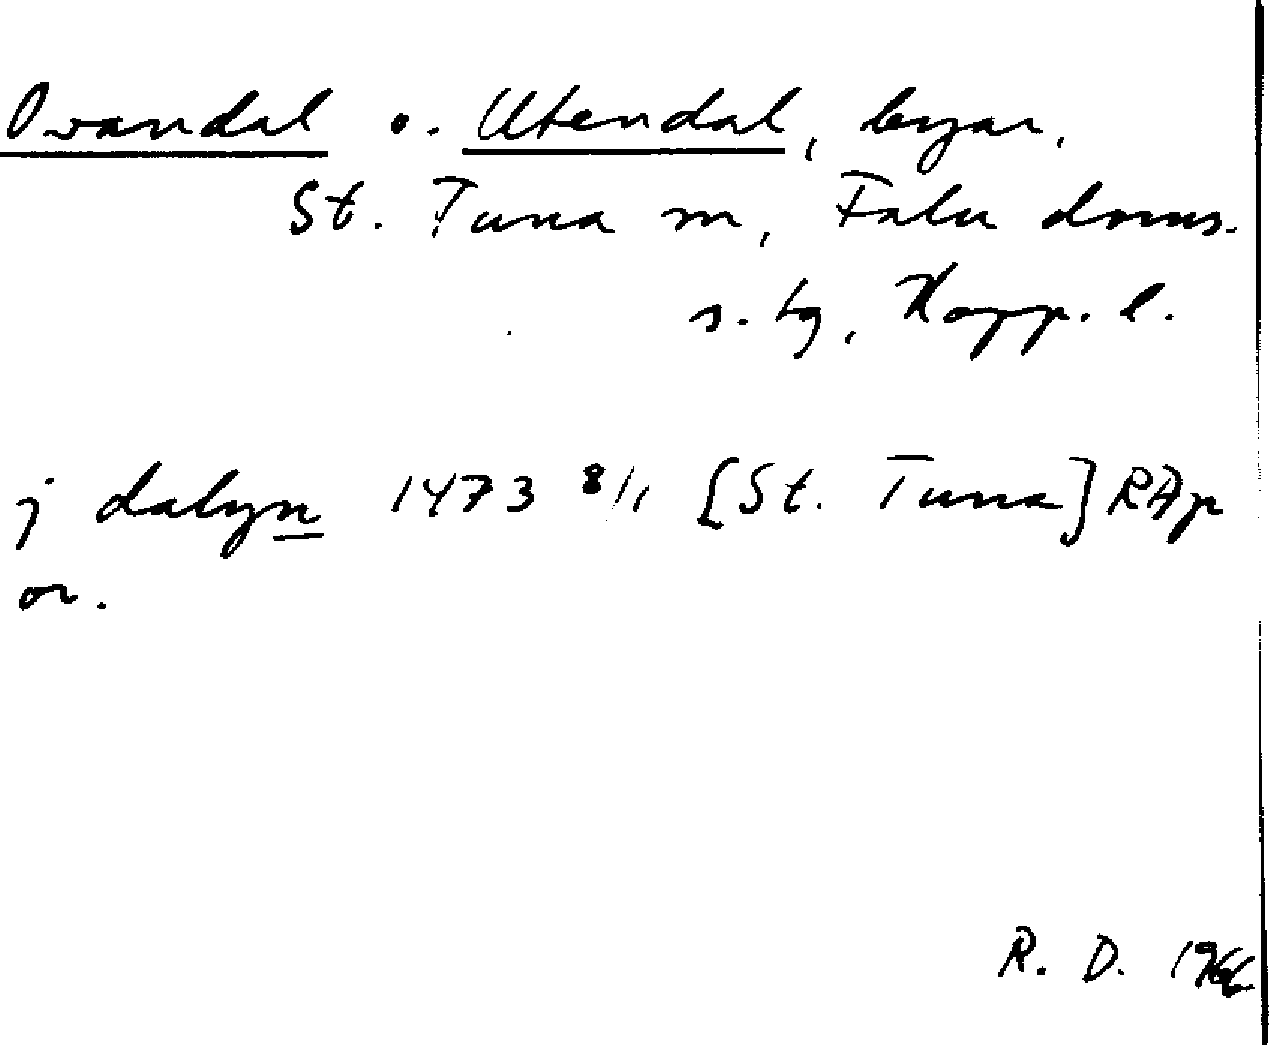 Ovandal o. Utendal, byar,
St. Tuna sn, Falu doms.
s. tg, Kopp. l.
j dalyn 1473 8/1 [St. Tuna] RAp
or.
R. D. 1966